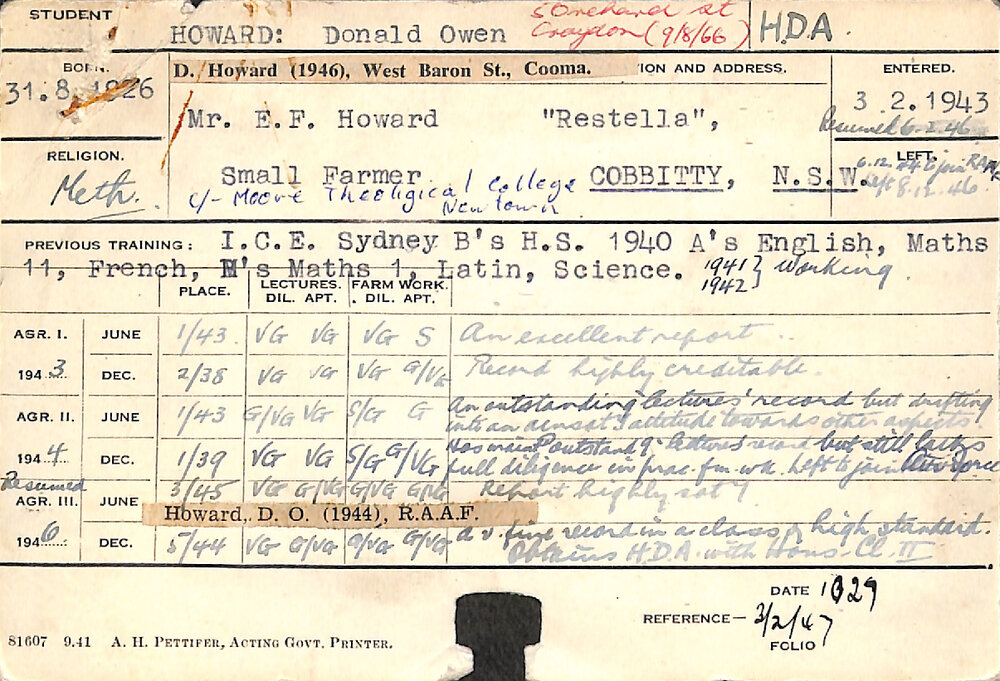 STUDENT
HOWARD: Donald Owen
St
Croydon (9/8/66)
H.D.A.
BORN.
31.8.1926
D. Howard (1946), West Baron St., Cooma.
ION AND ADDRESS.
ENTERED.
3 2. 1943
Resumed 6.2.46
Mr. E.F. Howard "Restella",
RELIGION.
Meth.
LEFT.
6.12.44 to join RAAF
Left 8.12.46
Small Farmer COBBITTY, N.S.W.
c/- Moore Theoligical College
Newtown
PREVIOUS TRAINING: I.C.E. Sydney B's H.S. 1940 A's English, Maths
11, French, H's Maths 1, Latin, Science. 1941 } Working.
1942
PLACE. LECTURES. DIL. APT. FARM WORK. DIL. APT.
AGR. I. JUNE 1/43 VG VG VG S An excellent report.
1943 DEC. 2/38 VG VG VG G/VG Record highly creditable.
AGR. II. JUNE 1/43 G/VG VG S/G G An outstanding lectures' record but drifting
into an unsat. attitude towards other aspects
1944 DEC. 1/39 VG VG S/G G/VG Has maint'd outstand'g lectures' record but still lacks
full diligence in prac. fm. wk. Left to join Air Force
Resumed
AGR. III. JUNE 3/45 VG G/VG G/VG G/VG Report highly sat'y
Howard, D. O. (1944), R.A.A.F.
1946 DEC. 5/44 VG G/VG G/VG G/VG a v. fine record in a class of high standard.
Obtains H.D.A. with Hons. Cl. II
DATE 1029
REFERENCE— 3/2/47
FOLIO
81607 9.41 A. H. PETTIFER, ACTING GOVT. PRINTER.